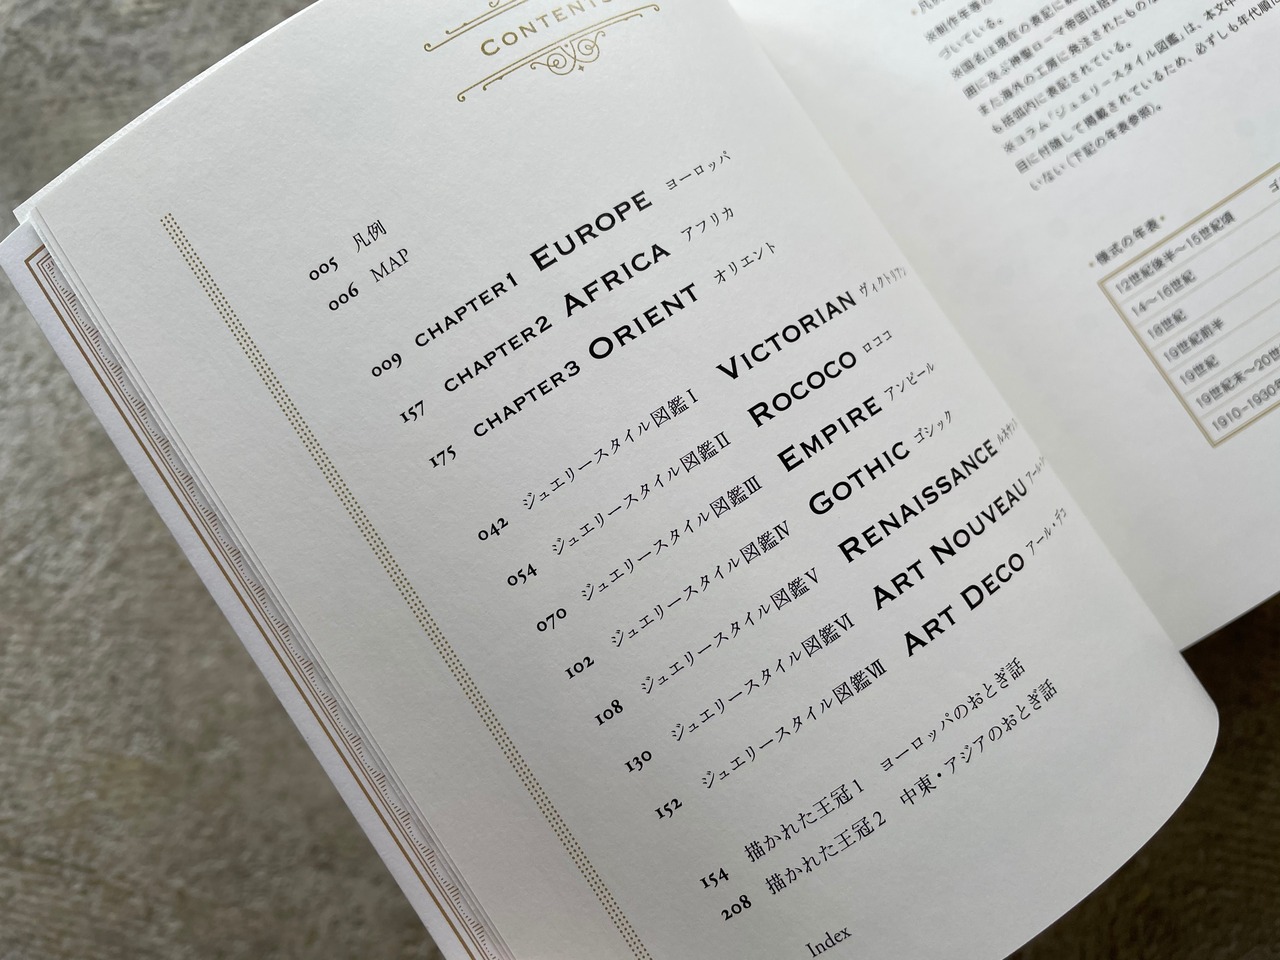 CONTENTS
005 凡例
006 MAP
009 CHAPTER1 EUROPE ヨーロッパ
157 CHAPTER2 AFRICA アフリカ
175 CHAPTER3 ORIENT オリエント
042 ジュエリースタイル図鑑Ⅰ VICTORIAN ヴィクトリアン
054 ジュエリースタイル図鑑Ⅱ ROCOCO ロココ
070 ジュエリースタイル図鑑Ⅲ EMPIRE アンピール
102 ジュエリースタイル図鑑Ⅳ GOTHIC ゴシック
108 ジュエリースタイル図鑑Ⅴ RENAISSANCE
130 ジュエリースタイル図鑑Ⅵ ART NOUVEAU
152 ジュエリースタイル図鑑Ⅶ ART DECO アール・デコ
154 描かれた王冠1 ヨーロッパのおとぎ話
208 描かれた王冠2 中東・アジアのおとぎ話
Index
づいている。
また海外の工房に発注されたもの
も括弧内に表記されている。
※コラム「ジュエリースタイル図鑑」は、本文中
目に付随して掲載されているため、必ずしも年代順に
いない(下記の年表参照)。
・様式の年表・
12世紀後半〜15世紀頃
14〜16世紀
18世紀
19世紀前半
19世紀
19世紀末〜20世
1910-1930